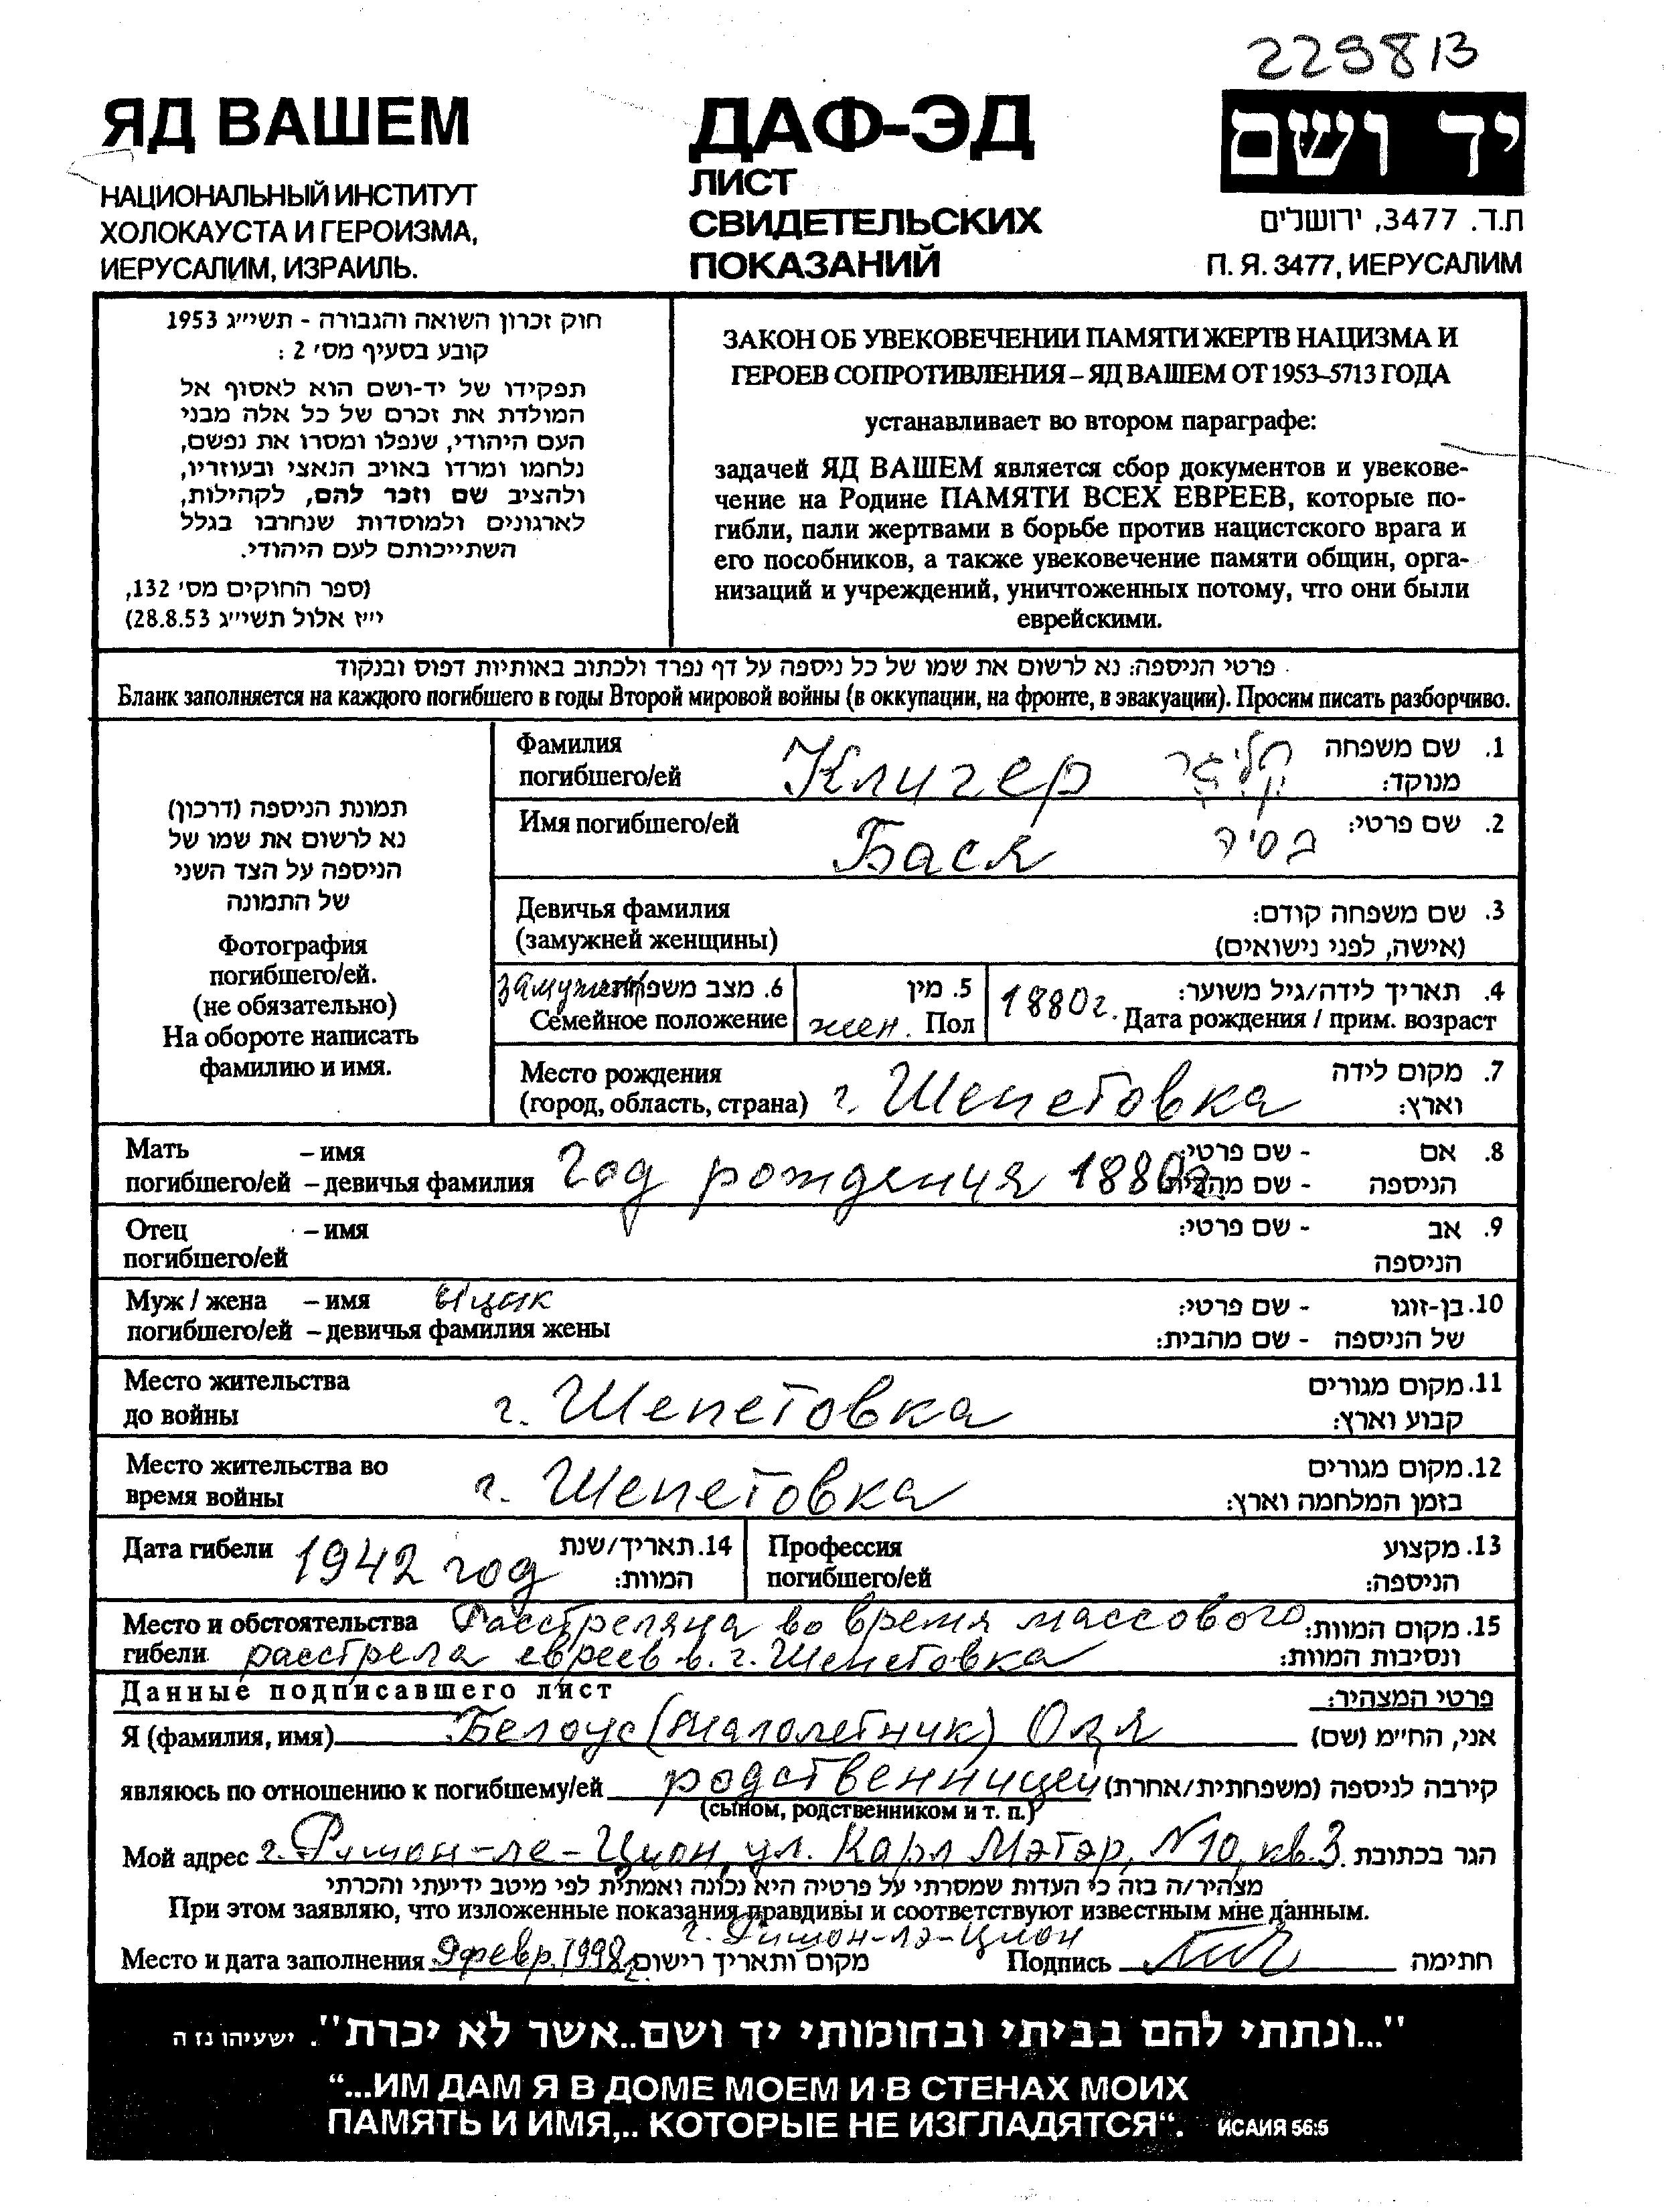 229813
ЯД ВАШЕМ
НАЦИОНАЛЬНЫЙ ИНСТИТУТ
ХОЛОКАУСТА И ГЕРОИЗМА,
ИЕРУСАЛИМ, ИЗРАИЛЬ.
ДАФ-ЭД
ЛИСТ
СВИДЕТЕЛЬСКИХ
ПОКАЗАНИЙ
יד ושם
ת.ד. 3477, ירושלים
П. Я. 3477, ИЕРУСАЛИМ
חוק זכרון השואה והגבורה - תשי״ג 1953
קובע בסעיף מס׳ 2 :
תפקידו של יד-ושם הוא לאסוף אל
המולדת את זכרם של כל אלה מבני
העם היהודי, שנפלו ומסרו את נפשם,
נלחמו ומרדו באויב הנאצי ובעוזריו,
ולהציב שם וזכר להם, לקהילות,
לארגונים ולמוסדות שנחרבו בגלל
השתייכותם לעם היהודי.
(ספר החוקים מס׳ 132,
י״ז אלול תשי״ג 28.8.53)
ЗАКОН ОБ УВЕКОВЕЧЕНИИ ПАМЯТИ ЖЕРТВ НАЦИЗМА И
ГЕРОЕВ СОПРОТИВЛЕНИЯ – ЯД ВАШЕМ ОТ 1953–5713 ГОДА
устанавливает во втором параграфе:
задачей ЯД ВАШЕМ является сбор документов и увекове-
чение на Родине ПАМЯТИ ВСЕХ ЕВРЕЕВ, которые по-
гибли, пали жертвами в борьбе против нацистского врага и
его пособников, а также увековечение памяти общин, орга-
низаций и учреждений, уничтоженных потому, что они были
еврейскими.
פרטי הניספה: נא לרשום את שמו של כל ניספה על דף נפרד ולכתוב באותיות דפוס ובנקוד
Бланк заполняется на каждого погибшего в годы Второй мировой войны (в оккупации, на фронте, в эвакуации). Просим писать разборчиво.
תמונת הניספה (דרכון)
נא לרשום את שמו של
הניספה על הצד השני
של התמונה
Фотография
погибшего/ей.
(не обязательно)
На обороте написать
фамилию и имя.
Фамилия Клигер קליגר 1. שם משפחה
погибшего/ей מנוקד:
Имя погибшего/ей Бася בסיה 2. שם פרטי:
Девичья фамилия 3. שם משפחה קודם:
(замужней женщины) (אישה, לפני נישואים)
замужем 6. מצב משפחתי 5. מין 1880г. 4. תאריך לידה/גיל משוער:
Семейное положение жен. Пол Дата рождения / прим. возраст
Место рождения 7. מקום לידה
(город, область, страна) г. Шепетовка וארץ:
Мать – имя - שם פרטי: 8. אם
погибшего/ей – девичья фамилия Год рождения 1880г. - שם מהבית: הניספה
Отец – имя - שם פרטי: 9. אב
погибшего/ей הניספה
Муж / жена – имя Ицик - שם פרטי: 10. בן-זוגו
погибшего/ей – девичья фамилия жены - שם מהבית: של הניספה
Место жительства 11. מקום מגורים
до войны г. Шепетовка קבוע וארץ:
Место жительства во 12. מקום מגורים
время войны г. Шепетовка בזמן המלחמה וארץ:
Дата гибели 1942 год 14. תאריך/שנת Профессия 13. מקצוע
המוות: погибшего/ей הניספה:
Место и обстоятельства Расстреляна во время массового 15. מקום המוות:
гибели расстрела евреев в г. Шепетовка ונסיבות המוות:
Данные подписавшего лист פרטי המצהיר:
Я (фамилия, имя) Белоус (малолетник) Оля אני, החי״מ (שם)
являюсь по отношению к погибшему/ей родственницей קירבה לניספה (משפחתית/אחרת)
(сыном, родственником и т. п.)
Мой адрес г. Ришон-ле-Цион, ул. Карл Мэтэр, N10, кв.3. הגר בכתובת
מצהיר/ה בזה כי העדות שמסרתי על פרטיה היא נכונה ואמתית לפי מיטב ידיעתי והכרתי
При этом заявляю, что изложенные показания правдивы и соответствуют известным мне данным.
г. Ришон-лэ-Цион
Место и дата заполнения 9 февр. 1998г. מקום ותאריך רישום Подпись חתימה
"...ונתתי להם בביתי ובחומותי יד ושם..אשר לא יכרת". ישעיהו נז ה
“...ИМ ДАМ Я В ДОМЕ МОЕМ И В СТЕНАХ МОИХ
ПАМЯТЬ И ИМЯ,.. КОТОРЫЕ НЕ ИЗГЛАДЯТСЯ“. ИСАИЯ 56:5